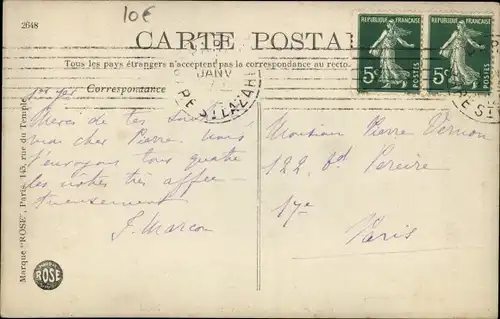 2648
10€
CARTE POSTAL
Tous les pays étrangers n'acceptent pas la correspondance au recto.
Correspondance
REPUBLIQUE FRANÇAISE
5c
POSTES
REPUBLIQUE FRANÇAISE
5c
POSTES
JANV
R. E ST LAZARE
RE ST
Merci de tes
mon cher Pierre. Nous
t'envoyons tous quatre
les nôtres très affec-
tueusement
J. Marcou
Monsieur Pierre Vernon
122, bd Pereire
17e
Paris
Marque "ROSE", Paris, 145, rue du Temple
ROSE